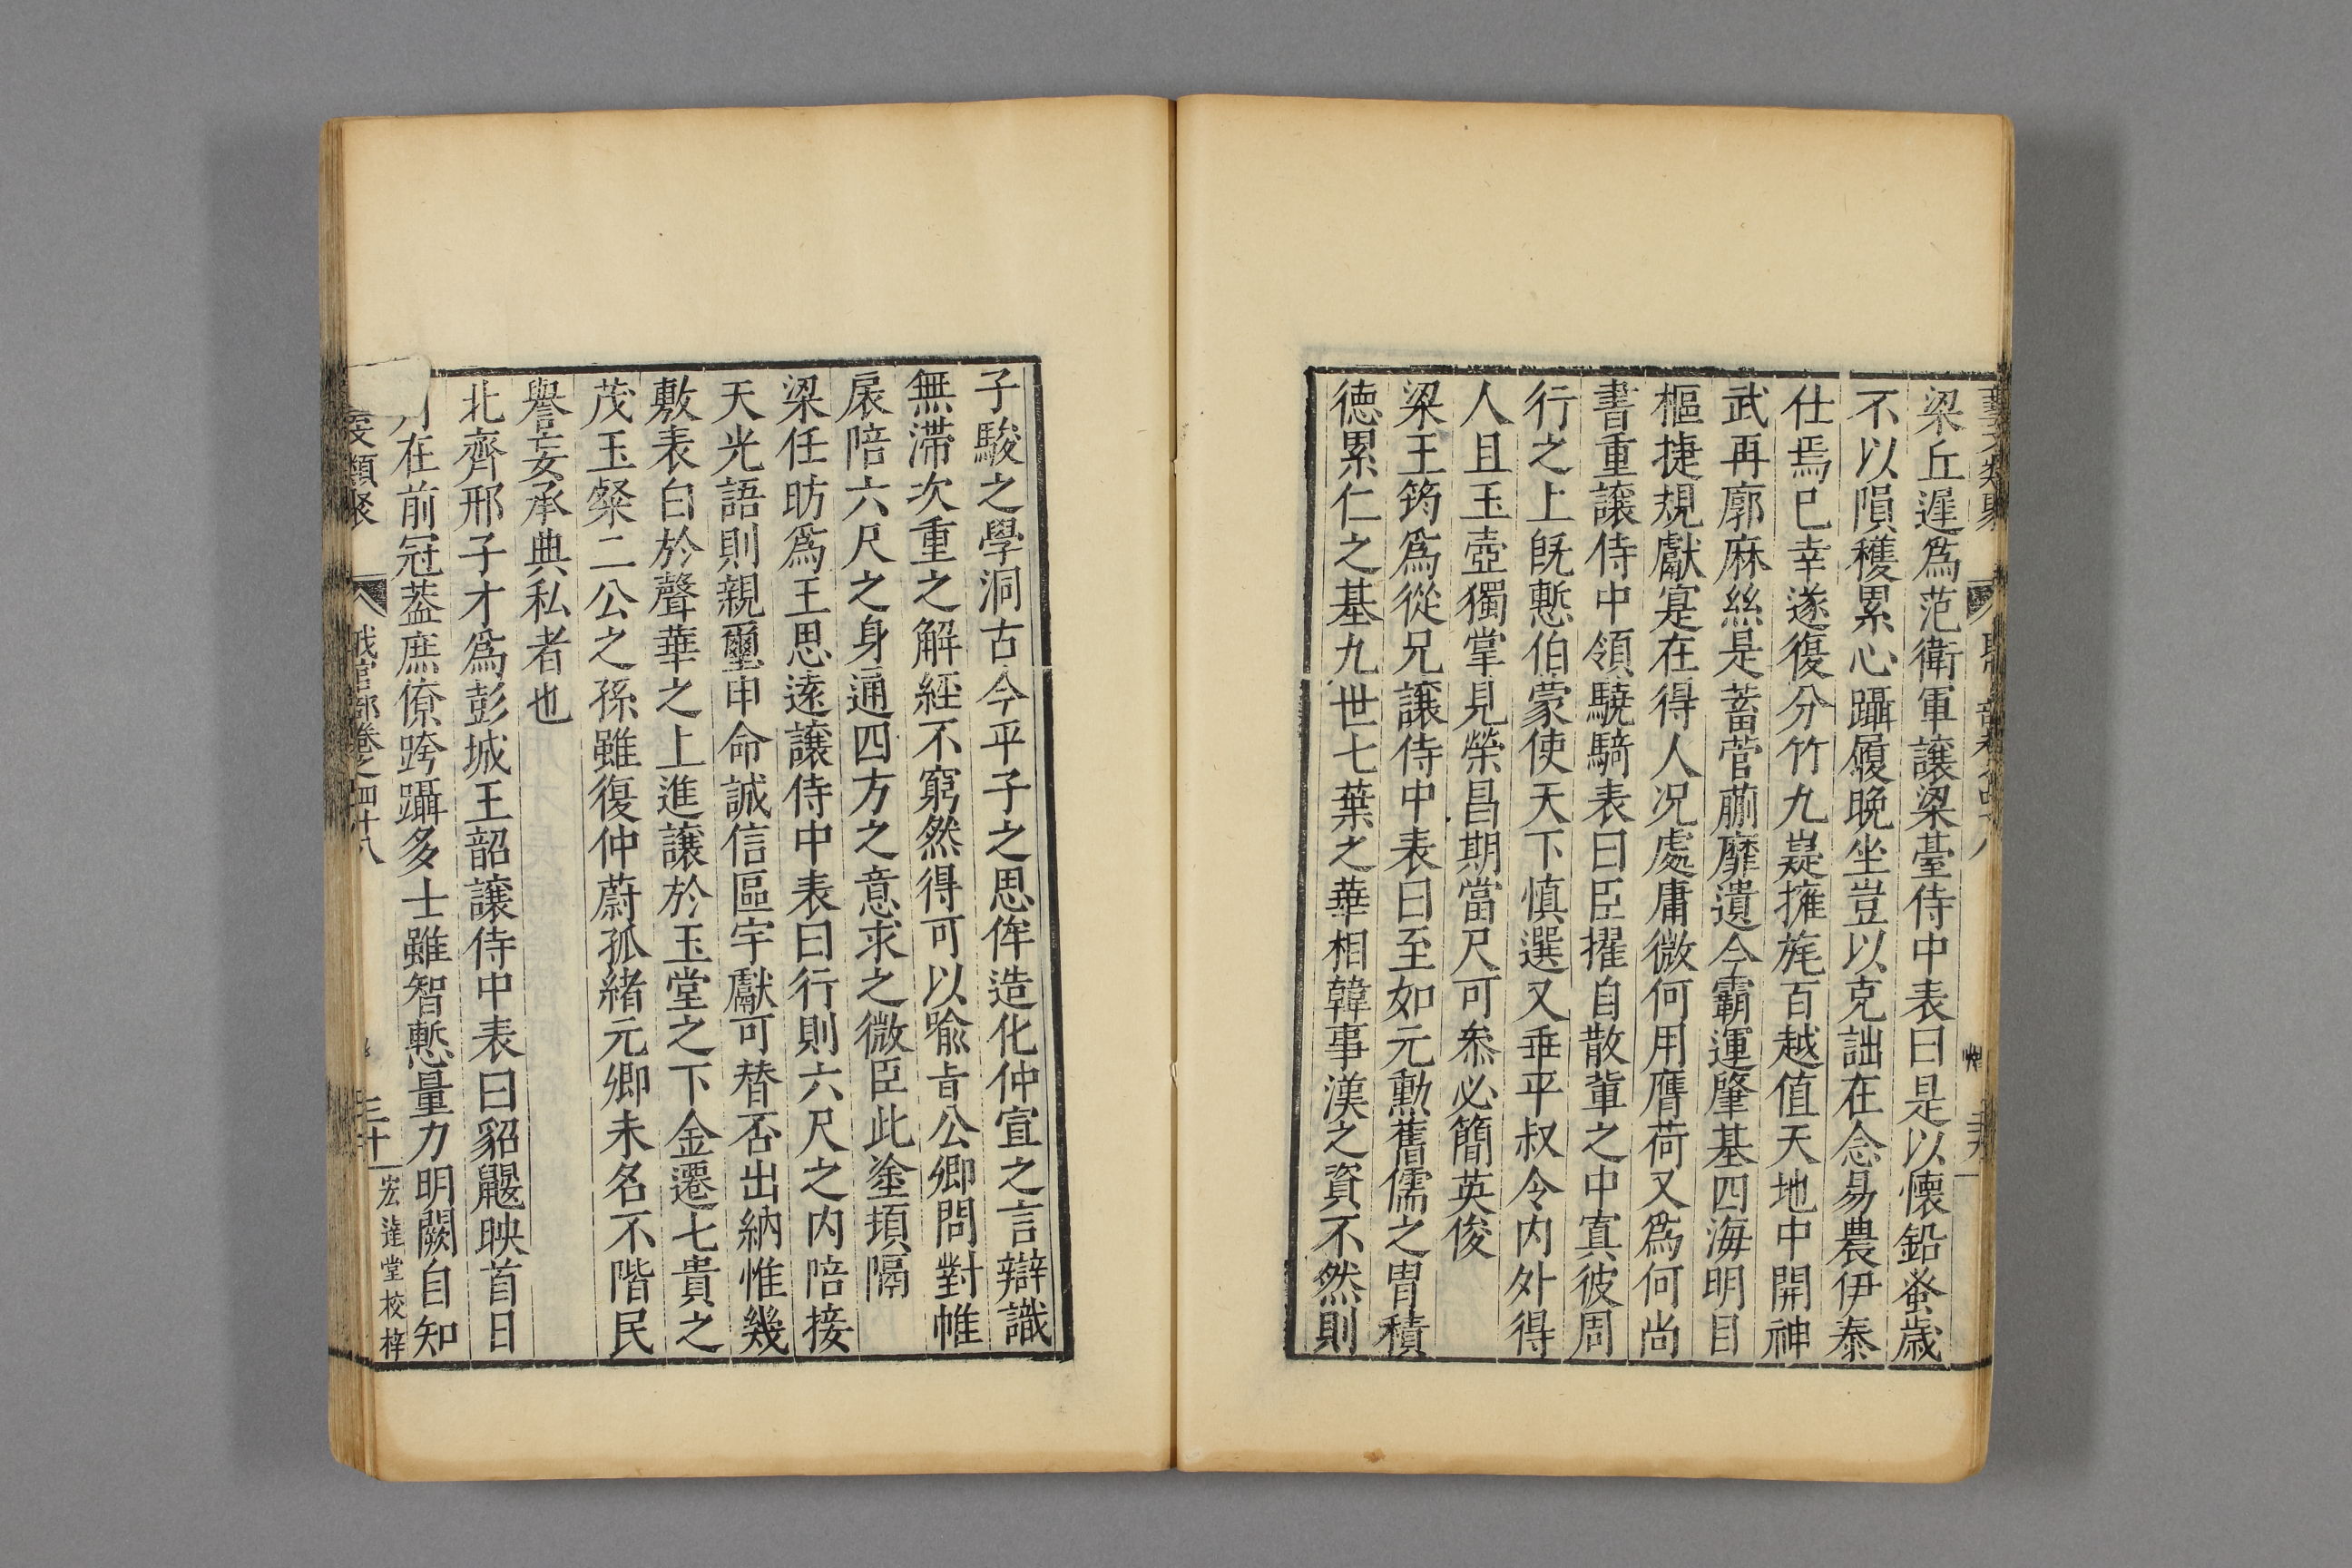 梁丘遲為范衛軍讓梁臺侍中表曰是以懷鉛蚤歲
不以隕穫累心躡履晚坐豈以克詘在念易農伊泰
仕焉已幸遂復分竹九嶷擁旄百越值天地中開神
武再廓麻絲是蓄菅蒯靡遺今霸運肇基四海明目
樞捷規獻寔在得人况處庸微何用膺荷又爲何尚
書重讓侍中領驍騎表曰臣擢自散軰之中寘彼周
行之上旣慙伯蒙使天下慎選又垂平叔令内外得
人且玉壺獨掌見榮昌期當尺可叅必簡英俊
梁王筠爲從兄讓侍中表曰至如元勳舊儒之胄積
德累仁之基九世七葉之華相韓事漢之資不然則
子駿之學洞古今平子之思侔造化仲宣之言辯識
無滯次重之解經不窮然得可以喻㫖公卿問對帷
扆陪六尺之身通四方之意求之微臣此塗頊隔
梁任昉爲王思遠讓侍中表曰行則六尺之内陪接
天光語則親璽申命誠信區宇獻可替否出納惟幾
敷表白於聲華之上進讓於玉堂之下金遷七貴之
茂玉粲二公之孫雖復仲蔚孤緒元卿未名不階民
譽妄承典私者也
北齊邢子才爲彭城王韶讓侍中表曰貂鼹映首日
月在前冠葢庶僚跨躡多士雖智慙量力明闕自知
類聚 職官部卷之四十八 三十 宏達堂校梓